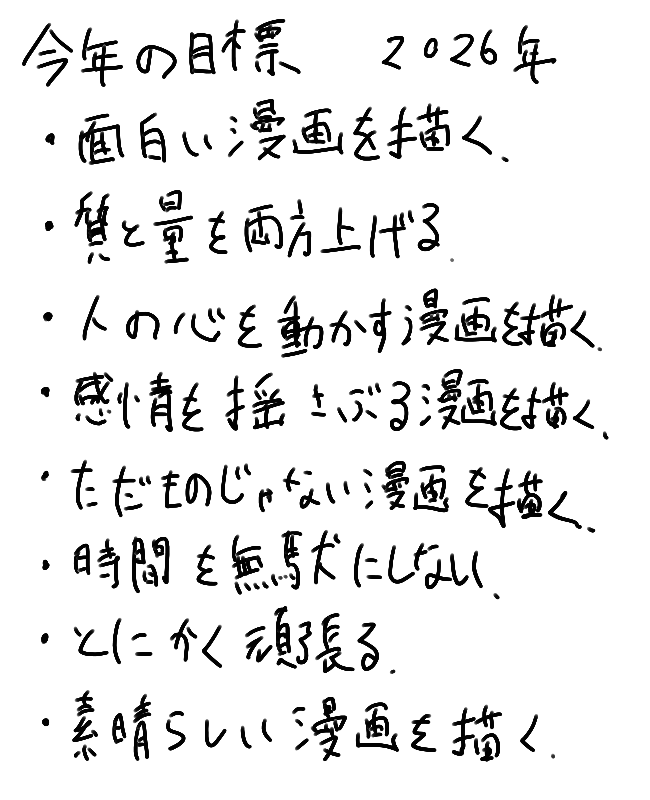 今年の目標 2026年
・面白い漫画を描く.
・質と量を両方上げる.
・人の心を動かす漫画を描く.
・感情を揺さぶる漫画を描く.
・ただものじゃない漫画を描く.
・時間を無駄にしない.
・とにかく頑張る.
・素晴らしい漫画を描く.